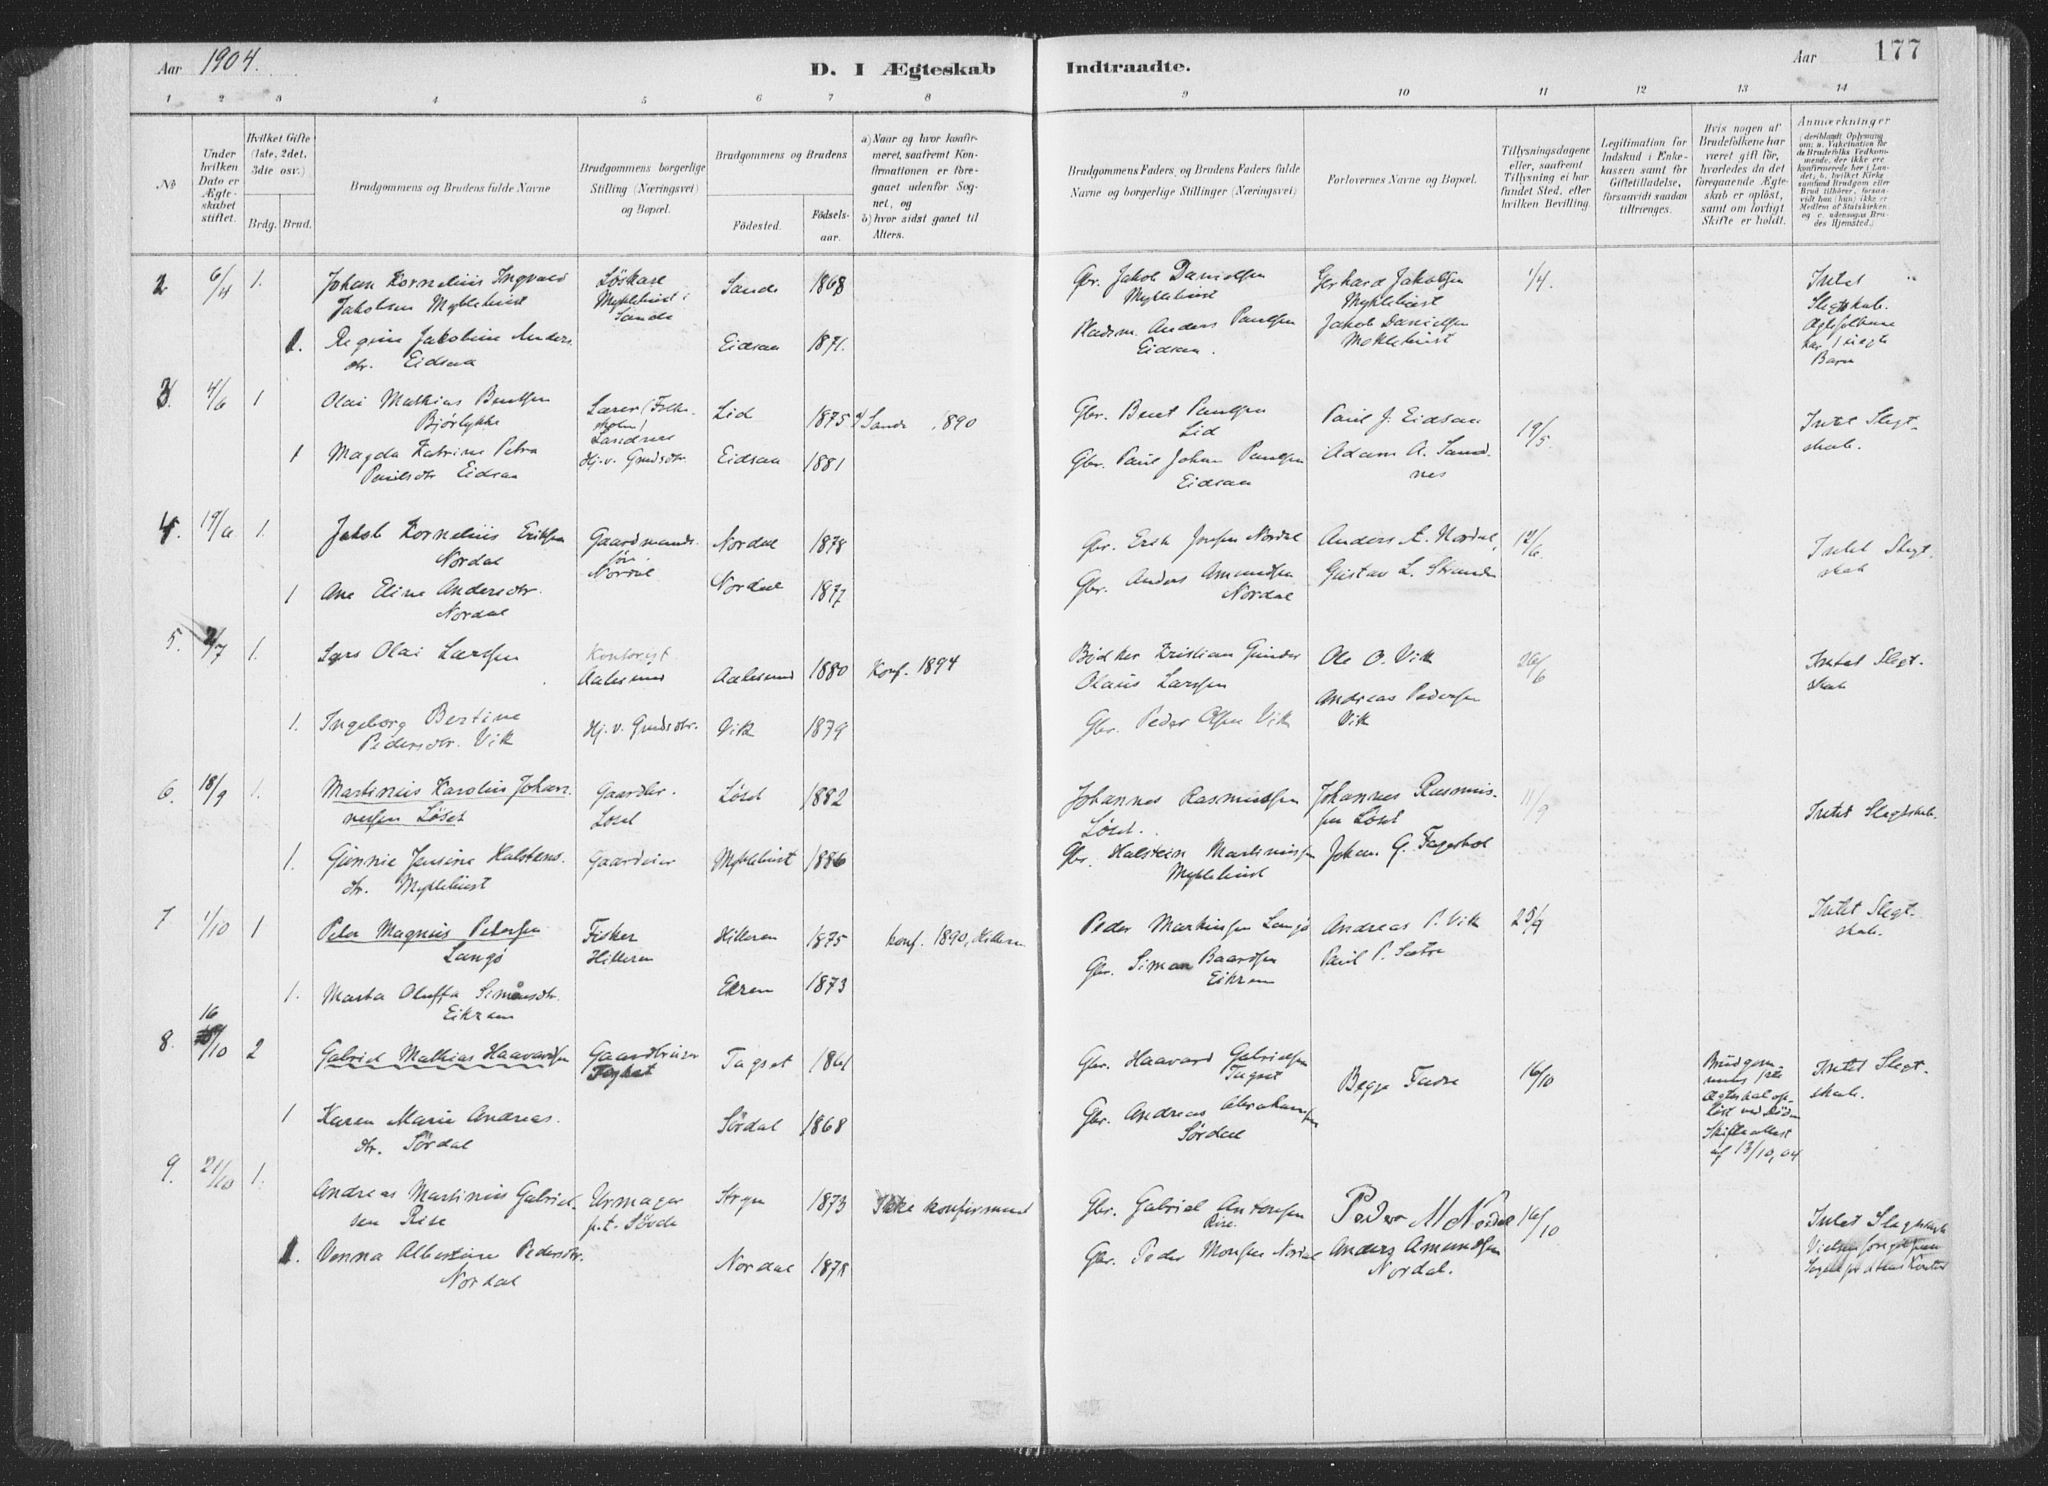 Aar 1904.
D. I Ægteskab Indtraadte.
Aar 177
1 2 3 4 5 6 7 8 9 10 11 12 13 14
No
Under hvilken Dato er Ægteskabet stiftet.
Hvilket Gifte (1ste, 2det, 3die osv.)
Brdg. Brud.
Brudgommens og Brudens fulde Navne
Brudgommens borgerlige Stilling (Næringsvei) og Bopæl.
Brudgommens og Brudens
Fødested. Fødsels-aar.
a) Naar og hvor konfirmeret, saafremt Konfirmationen er foregaaet udenfor Sognet, og
b) hvor sidst gaaet til Alters.
Brudgommens Faders og Brudens Faders fulde Navne og borgerlige Stillinger (Næringsvei)
Forlovernes Navne og Bopæl.
Tillysningsdagene eller, saafremt Tillysning ei har fundet Sted, efter hvilken Bevilling.
Legitimation for Indskud i Enkekassen samt for Giftetilladelse, forsaavidt saadan tiltrænges.
Hvis nogen af Brudefolkene har været gift før, hvorledes da det foregaaende Ægteskab er opløst, samt om lovligt Skifte er holdt.
Anmærkninger
2 6/4 1. Johan Kornelius Ingvald Søskarl Sande 1868 Gbr. Jakob Danielsen Gerhard Jakobsen 1/4. Intet
Jakobsen Myklebust Myklebust i Myklebust Myklebust Slegtskab.
Sande
1. Regine Jakobine Anders. Eidsaa 1871. Pladsm. Anders Paulsen Jakob Danielsen
dtr. Eidsaa Eidsaa. Myklebust Barn
3. 4/6 1 Olai Mathias Bentsen Lærer (Folke- Lid 1875 a) Sande 1890 Gbr. Bent Paulsen Paul J. Eidsaa 19/5. Intet Slegt-
Bjørlykke skolen) Lid skab.
Sandnes
1 Magda Katrine Petra Hj. v. Gmdsdtr. Eidsaa 1881 Gbr. Paul Johan Paulsen Adam A. Sand-
Paulsdtr Eidsaa Eidsaa nes
4. 19/6 1. Jakob Kornelius Eriksen Gaardmands Nordal 1878 Gbr. Erik Jonsen Nordal Anders A. Nordal, 12/6 Intet Slegt.
Nordal søn Nordal skab
1 Ane Eline Andersdtr. Nordal 1877 Gbr. Anders Amundsen Gustav L. Strande
Nordal Nordal
5. 2/7 1. Lars Olai Larssen Kontorist Aalesund 1880 Konf. 1894 Bødker Kristian Gunder Ole O. Vik 26/6 Intet Slegt.
Aalesund Olaus Larssen skab
1. Ingeborg Bertine Hj. v. Gmdsdtr. Vik 1879 Gbr. Peder Olsen Vik Andreas Pedersen
Pedersdtr. Vik Vik
6. 18/9 1. Martinius Karolius Johan- Gaardbr. Løset 1882 Johannes Rasmussen Johannes Rasmus- 11/9 Intet Slegtskab.
nessen Løset Løset Løset. sen Løset
1. Gunnie Jensine Halstens. Gaardeier Myklebust 1886 Gbr. Halstein Martinussen Johan G. Fagerhol
dtr. Myklebust Myklebust
7 1/10 1 Peter Magnus Petersen Fisker Hilleren 1875 Konf. 1890, Hilleren Peder Markussen Langø Andreas P. Vik 25/9 Intet Slegt.
Langø Hilleren skab.
1. Marta Oluffa Simonsdtr. Ekrem 1873 Gbr. Simon Baardsen Paul P. Sætre
Eikrem Eikrem
8. 16/10 2 Gabriel Mathias Haavardsen Gaardbruger Tagset 1861 Gbr. Haavard Gabrielsen Begge Fædre 16/10 Brudgom- Intet Slegt.
Tagset Tagset mens 1ste skab.
1 Karen Marie Andreas. Sørdal 1868 Gbr. Andreas Abrahamsen Ægteskab op-
dtr. Sørdal Sørdal løst ved Døden
Skifteattest
af 13/10, 04
9. 21/10 1. Andreas Martinius Gabriel- Urmager Stryn 1873 Ikke konfirmeret Gbr. Gabriel Antonsen Peder M Nordal 16/10 Intet Slegtskab
sen Rise p.t. Søvde Rise.
1. Venna Albertine Pedersdtr. Nordal 1878 Gbr. Peder Monsen Nordal Anders Amundsen
Nordal Nordal.